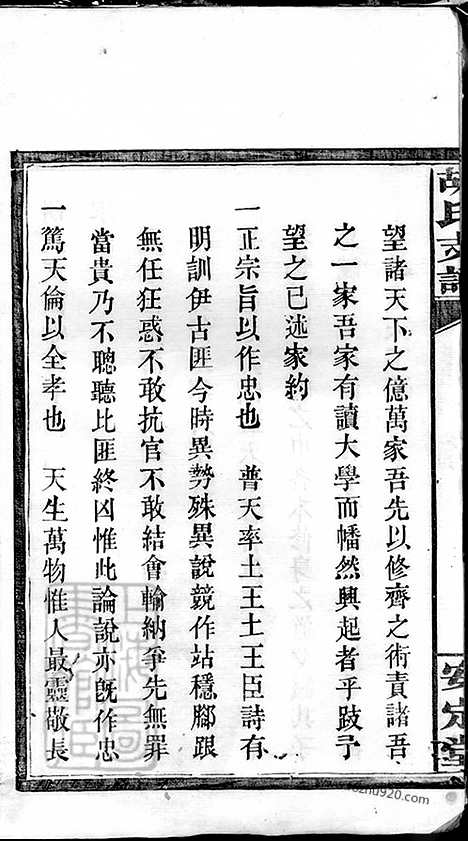 胡氏支譜
安定堂
望諸天下之億萬家吾先以修齊之術責諸吾
之一家吾家有讀大學而幡然興起者乎跂予
望之已述家約
一正宗旨以作忠也 普天率土王土王臣詩有
明訓伊古匪今時異勢殊異說競作站穩腳跟
無任狂惑不敢抗官不敢結會輸納爭先無罪
當貴乃不聰聽比匪終凶惟此論說亦旣作忠
一篤天倫以全孝也 天生萬物惟人最靈敬長